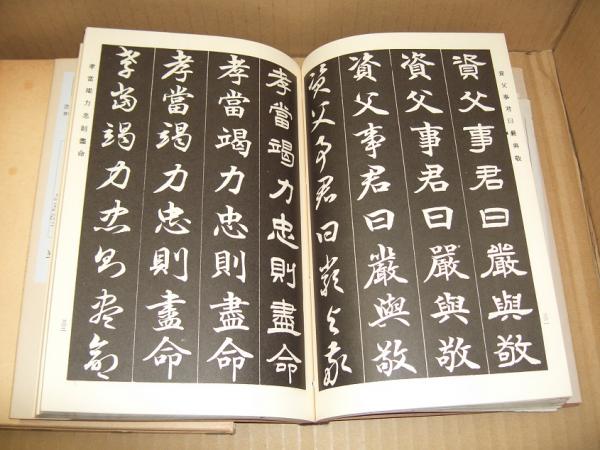 資父事君曰嚴與敬
資父事君曰嚴與敬
資父事君曰嚴與敬
資父事君曰嚴與敬
資父事君曰嚴與敬
孝當竭力忠則盡命
孝當竭力忠則盡命
孝當竭力忠則盡命
孝當竭力忠則盡命
孝當竭力忠則盡命